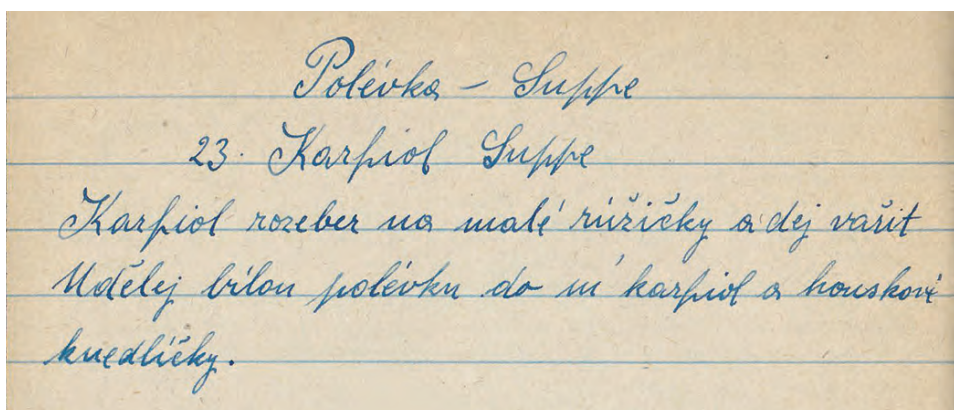 Polévka – Suppe
23. Karfiol Suppe
Karfiol rozeber na malé růžičky a dej vařit
Udělej bílou polévku do ní karfiol a houskové
knedlíčky.